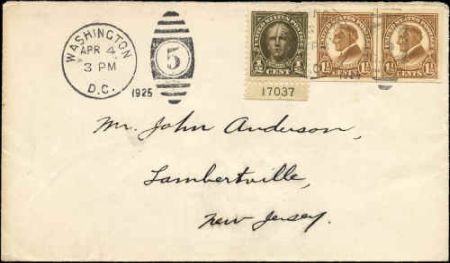 WASHINGTON
APR 4
3 PM
D.C.
1925
5
½ CENT ½
17037
1½ CENTS 1½
1½ CENTS 1½
Mr. John Anderson,
Lambertville,
New Jersey.